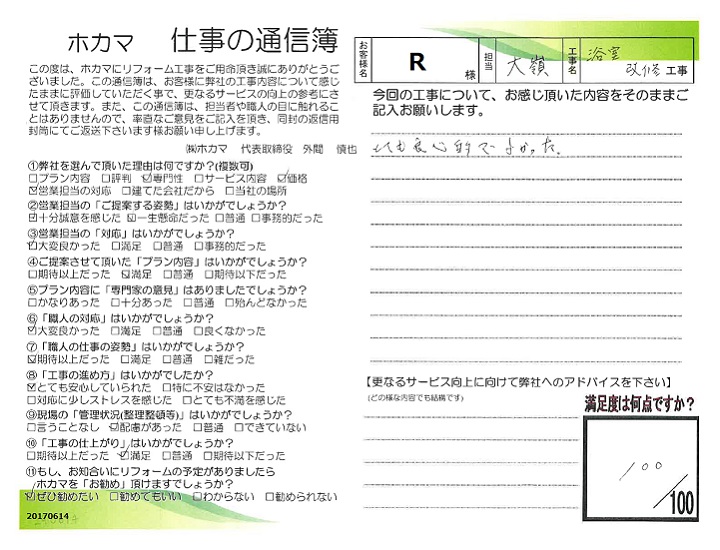 ホカマ 仕事の通信簿
この度は、ホカマにリフォーム工事をご用命頂き誠にありがとうご
ざいました。この通信簿は、お客様に弊社の工事内容について感じ
たままに評価していただく事で、更なるサービスの向上の参考にさ
せて頂きます。また、この通信簿は、担当者や職人の目に触れるこ
とはありませんので、率直なご意見をご記入を頂き、同封の返信用
封筒にてご返送下さいます様お願い申し上げます。
㈱ホカマ 代表取締役 外間 慎也
①弊社を選んで頂いた理由は何ですか?(複数可)
□プラン内容 □評判 ☑専門性 □サービス内容 ☑価格
☑営業担当の対応 □建てた会社だから □当社の場所
②営業担当の「ご提案する姿勢」はいかがでしょうか?
☑十分誠意を感じた ☑一生懸命だった □普通 □事務的だった
③営業担当の「対応」はいかがでしょうか?
☑大変良かった □満足 □普通 □事務的だった
④ご提案させて頂いた「プラン内容」はいかがでしょうか?
□期待以上だった ☑満足 □普通 □期待以下だった
⑤プラン内容に「専門家の意見」はありましたでしょうか?
□かなりあった □十分あった □普通 □殆んどなかった
⑥「職人の対応」はいかがでしょうか?
☑大変良かった □満足 □普通 □良くなかった
⑦「職人の仕事の姿勢」はいかがでしょうか?
☑期待以上だった □満足 □普通 □雑だった
⑧「工事の進め方」はいかがでしたか?
☑とても安心していられた □特に不安はなかった
□対応に少しストレスを感じた □とても不満を感じた
⑨現場の「管理状況(整理整頓等)」はいかがでしょうか?
□言うことなし ☑配慮があった □普通 □できていない
⑩「工事の仕上がり」はいかがでしょうか?
□期待以上だった ☑満足 □普通 □期待以下だった
⑪もし、お知合いにリフォームの予定がありましたら
ホカマを「お勧め」頂けますでしょうか?
☑ぜひ勧めたい □勧めてもいい □わからない □勧められない
20170614
お客様名 R 様 担当 大嶺 工事名 浴室改修 工事
今回の工事について、お感じ頂いた内容をそのままご
記入お願いします。
とても良心的でよかった.
【更なるサービス向上に向けて弊社へのアドバイスを下さい】
(どの様な内容でも結構です)
満足度は何点ですか?
100
/100